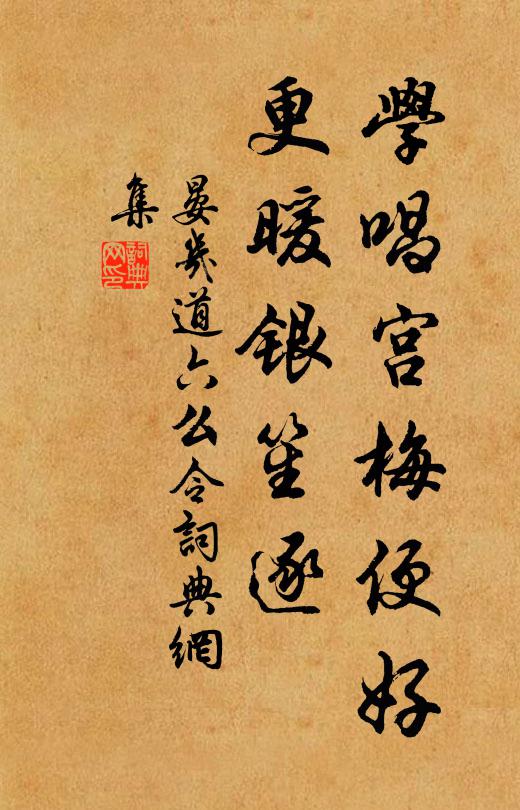 學唱宮梅便好
更暖銀笙逐
晏幾道六么令詞典網
集
詞典
网印